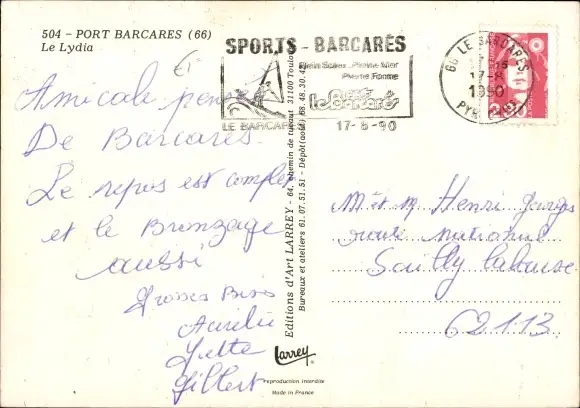 504 - PORT BARCARES (66)
Le Lydia
SPORTS - BARCARÈS
Plein Soleil Pleine Mer
Pleine Forme
Port
Le Barcarès
LE BARCARES 17-8-90
66 LE BARCARES
17-8
1990
PYR.
Amicale pensée
De Barcarès.
Le repos est complet
et le Bronzage
aussi
Grosses Bises
Aurélie
Yvette
Gilbert
Editions d'Art LARREY - 64, chemin de 31100 Toulouse
Bureaux et ateliers 61.07.51.51 - Dépôt(août) 68.48.30.
Larrey
reproduction interdite
Made in France
M et M Henri Georges
route Nationale
Sailly labourse
62113.